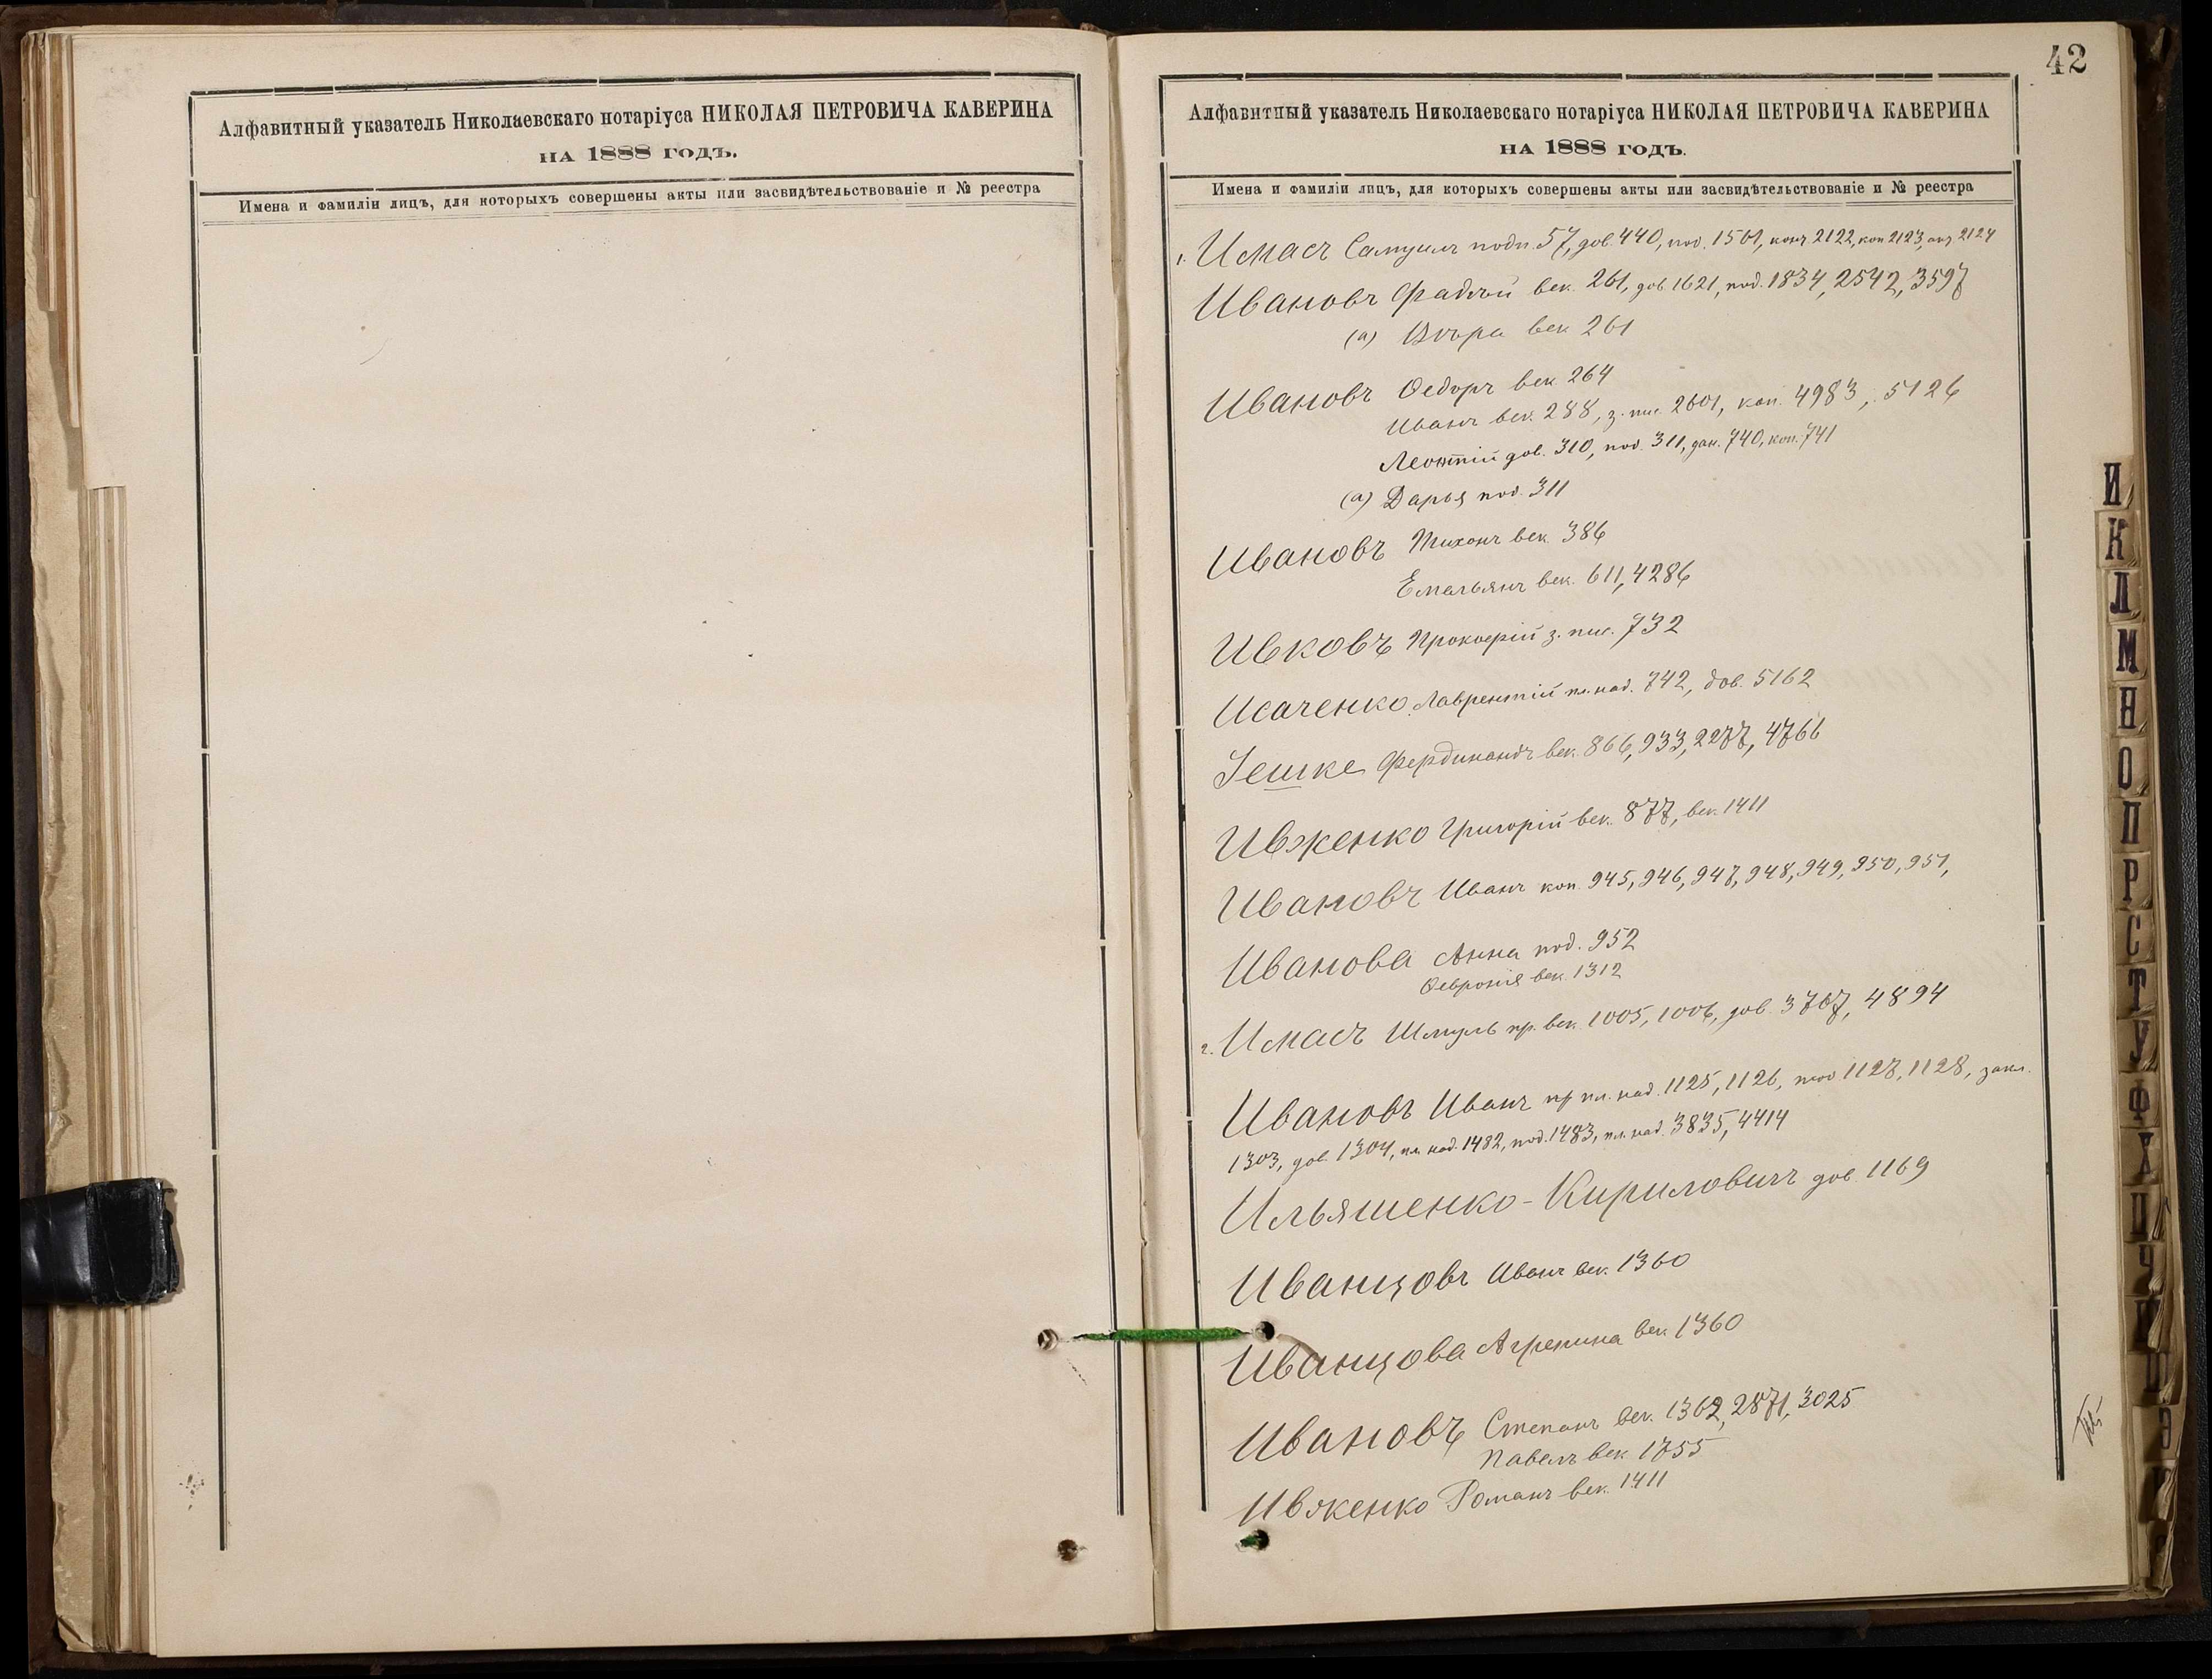 Алфавитный указатель Николаевскаго нотаріуса НИКОЛАЯ ПЕТРОВИЧА КАВЕРИНА
НА 1888 ГОДЪ.
Имена и фамиліи лицъ, для которыхъ совершены акты или засвидѣтельствованіе и № реестра
42
Алфавитный указатель Николаевскаго нотаріуса НИКОЛАЯ ПЕТРОВИЧА КАВЕРИНА
НА 1888 ГОДЪ.
Имена и фамиліи лицъ, для которыхъ совершены акты или засвидѣтельствованіе и № реестра
1. Имасъ Самуилъ подп. 57, дов. 440, под. 1561, 2122, коп 2123, 2124
Ивановъ Фадѣй век. 261, дов 1621, под. 1834, 2542, 3597
(а) Вѣра век 261
Ивановъ Ѳедоръ век. 264
Иванъ век. 288, з. пис. 2601, коп. 4983, 5126
Леонтій дов. 310, под. 311, дан. 740, коп. 741
(а) Дарья под. 311
Ивановъ Тихонъ век. 386
Емельянъ век. 611, 4286
Ивковъ Прокофій з. пис. 732
Исаченко Лаврентій пл. над. 742, дов. 5162
Іешке Фердинандъ век. 866, 933, 2277, 4766
Ивженко Григорій век. 877, век. 1411
Ивановъ Иванъ коп. 945, 946, 947, 948, 949, 950, 951,
Иванова Анна под. 952
Ѳевронія век. 1312
2. Имасъ Шмуль пр. век. 1005, 1006, дов. 3707, 4894
Ивановъ Иванъ пр пл. над. 1125, 1126, 1127, 1128, закл.
1303, дов. 1304, пл. над. 1482, под. 1483, пл. над. 3835, 4414
Ильяшенко-Кириловичъ дов. 1169
Иванцовъ Иванъ век. 1360
Иванцова Агрепина век. 1360
Ивановъ Степанъ век. 1362, 2871, 3025
Павелъ век. 1755
Ивженко Романъ век. 1411
И
К
Л
М
Н
О
П
Р
С
Т
У
Ф
Х
Ц
Ч
Ш
Щ
Э